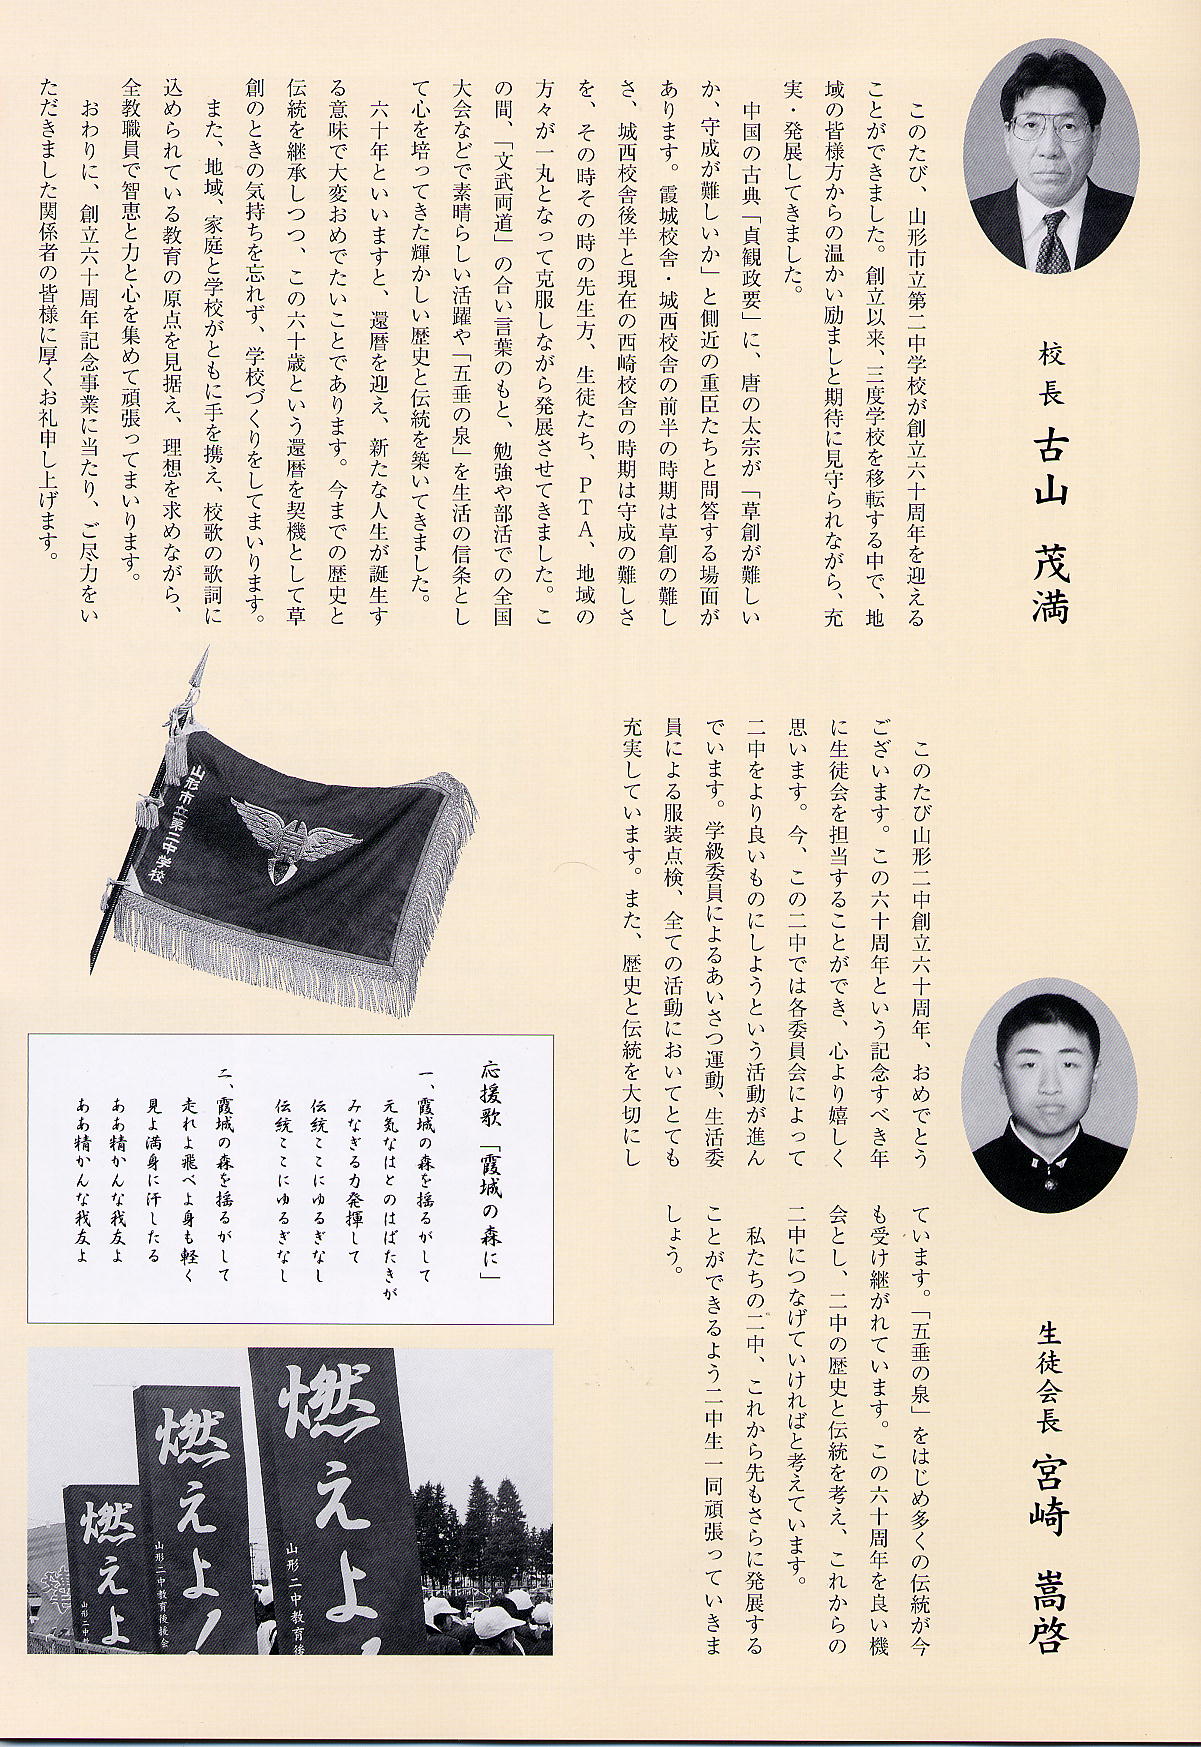 校長 古山 茂満
このたび、山形市立第二中学校が創立六十周年を迎える
ことができました。創立以来、三度学校を移転する中で、地
域の皆様方からの温かい励ましと期待に見守られながら、充
実・発展してきました。
中国の古典「貞観政要」に、唐の太宗が「草創が難しい
か、守成が難しいか」と側近の重臣たちと問答する場面が
あります。霞城校舎・城西校舎の前半の時期は草創の難し
さ、城西校舎後半と現在の西崎校舎の時期は守成の難しさ
を、その時その時の先生方、生徒たち、PTA、地域の
方々が一丸となって克服しながら発展させてきました。こ
の間、「文武両道」の合い言葉のもと、勉強や部活での全国
大会などで素晴らしい活躍や「五垂の泉」を生活の信条とし
て心を培ってきた輝かしい歴史と伝統を築いてきました。
六十年といいますと、還暦を迎え、新たな人生が誕生す
る意味で大変おめでたいことであります。今までの歴史と
伝統を継承しつつ、この六十歳という還暦を契機として草
創のときの気持ちを忘れず、学校づくりをしてまいります。
また、地域、家庭と学校がともに手を携え、校歌の歌詞に
込められている教育の原点を見据え、理想を求めながら、
全教職員で智恵と力と心を集めて頑張ってまいります。
おわりに、創立六十周年記念事業に当たり、ご尽力をい
ただきました関係者の皆様に厚くお礼申し上げます。
生徒会長 宮崎 嵩啓
このたび山形二中創立六十周年、おめでとう
ございます。この六十周年という記念すべき年
に生徒会を担当することができ、心より嬉しく
思います。今、この二中では各委員会によって
二中をより良いものにしようという活動が進ん
でいます。学級委員によるあいさつ運動、生活委
員による服装点検、全ての活動においてとても
充実しています。また、歴史と伝統を大切にし
ています。「五垂の泉」をはじめ多くの伝統が今
も受け継がれています。この六十周年を良い機
会とし、二中の歴史と伝統を考え、これからの
二中につなげていければと考えています。
私たちの二中、これから先もさらに発展する
ことができるよう二中生一同頑張っていきま
しょう。
山形市立第二中学校
応援歌「霞城の森に」
一、霞城の森を揺るがして
元気なはとのはばたきが
みなぎる力発揮して
伝統ここにゆるぎなし
伝統ここにゆるぎなし
二、霞城の森を揺るがして
走れよ飛べよ身も軽く
見よ満身に汗したる
ああ精かんな我友よ
ああ精かんな我友よ
燃えよ
山形二中教育後
燃えよ!
山形二中教育後援会
燃えよ
山形二中